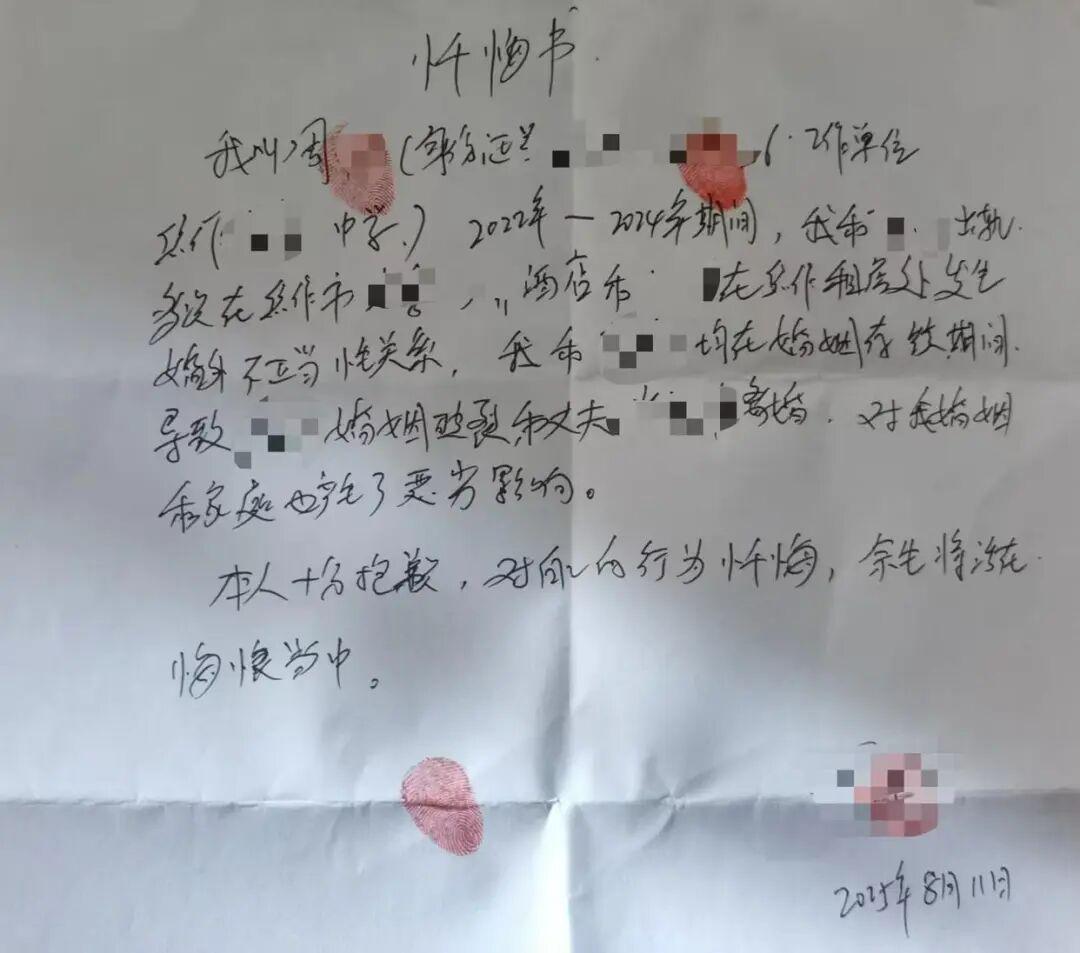 忏悔书.
我叫周 (身份证 6. 工作单位
焦作 中学.) 2022年-2024年期间, 我和 出轨.
多次在焦作市 , 酒店和 在焦作租房处发生
婚外不正当性关系, 我和 均在婚姻存续期间.
导致 婚姻破裂和丈夫 离婚. 对我婚姻
和家庭也产生了恶劣影响。
本人十分抱歉, 对自己的行为忏悔, 余生将活在.
悔恨当中。
2025年8月11日